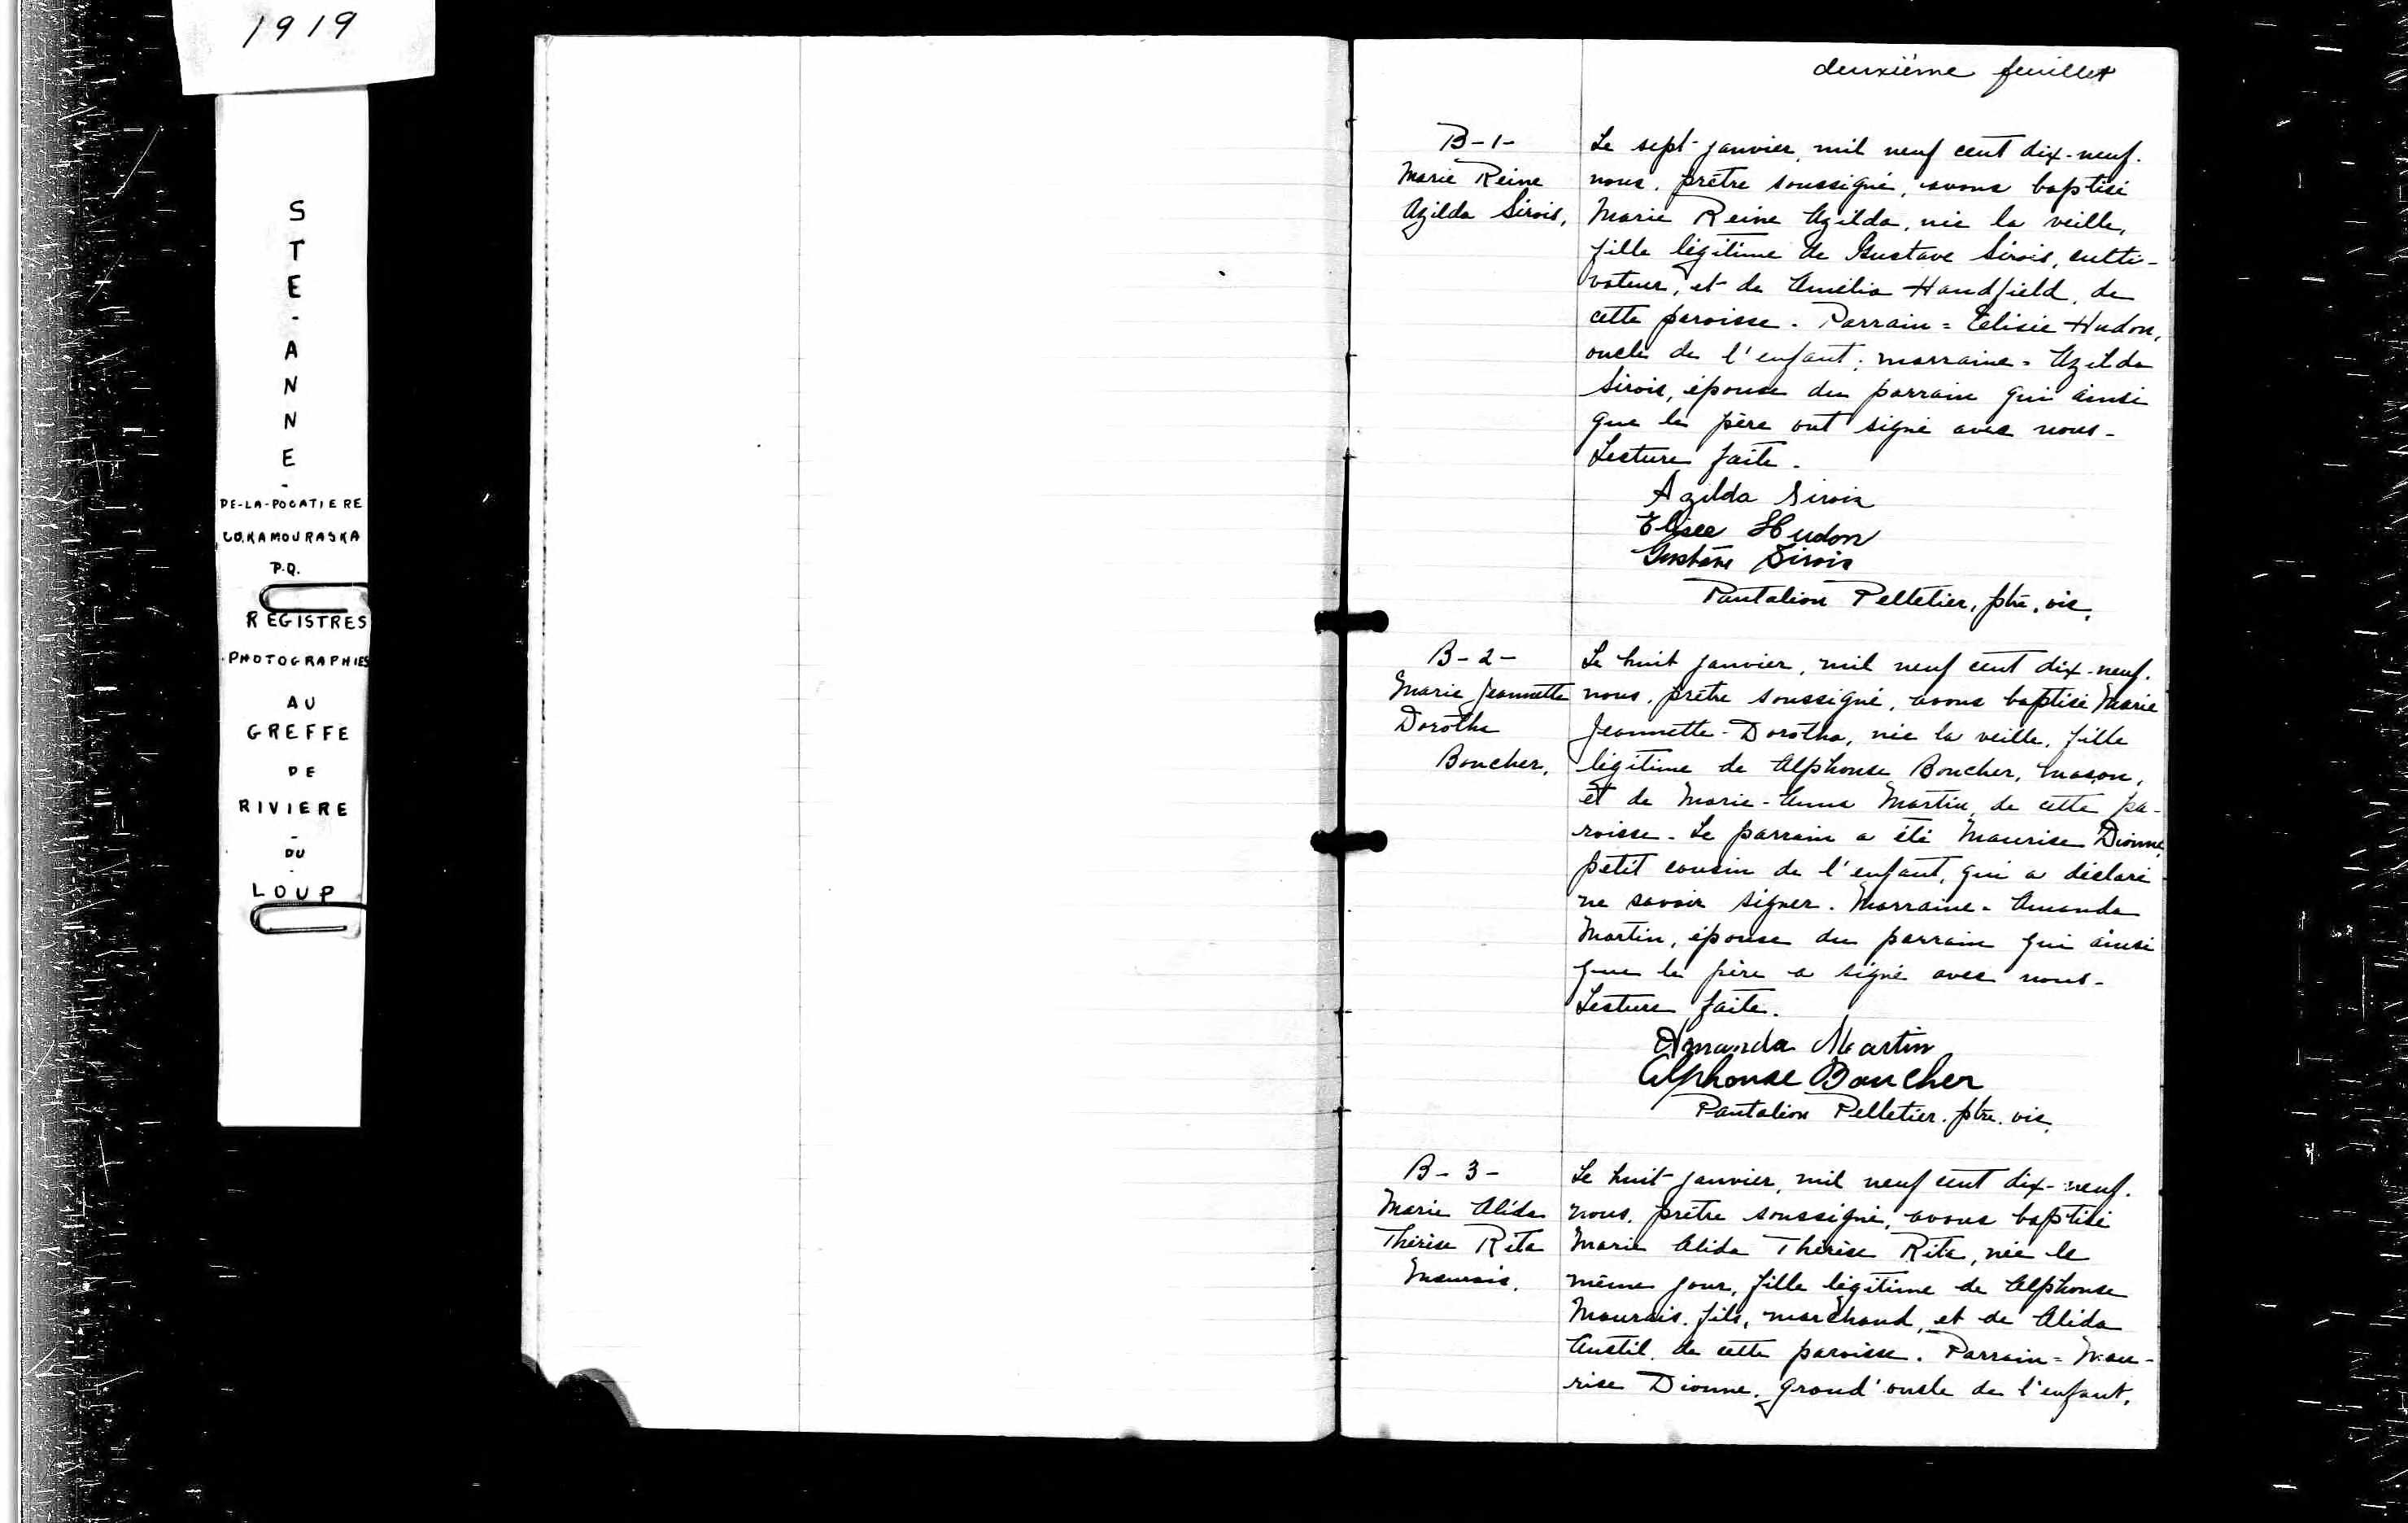 1919
STE-ANNE-
DE-LA-POCATIERE
CO. KAMOURASKA
P.Q.
REGISTRES
PHOTOGRAPHIES
AU
GREFFE
DE
RIVIERE
-
DU
-
LOUP
deuxième feuillet
B-1-
Marie Reine
Azilda Sirois,
Le sept janvier, mil neuf cent dix-neuf.
nous, prêtre soussigné, avons baptisé
Marie Reine Azilda, née la veille,
fille légitime de Gustave Sirois, culti-
vateur, et de Amélia Handfield, de
cette paroisse. Parrain = Elisée Hudon,
oncle de l'enfant; marraine = Azilda
Sirois, épouse du parrain qui ainsi
que le père ont signé avec nous-
Lecture faite.
Azilda Sirois
Elisee Hudon
Gustave Sirois
Pantaléon Pelletier, ptre, vic.
B-2-
Marie Jeannette
Dorotha
Boucher.
Le huit janvier, mil neuf cent dix-neuf.
nous, prêtre soussigné, avons baptisé Marie
Jeannette-Dorotha, née la veille, fille
légitime de Alphonse Boucher, maçon,
et de Marie-Anna Martin, de cette pa-
roisse. Le parrain a été Maurise Dionne,
petit cousin de l'enfant, qui a déclaré
ne savoir signer. Marraine = Amanda
Martin, épouse du parrain qui ainsi
que le père a signé avec nous-
Lecture faite.
Amanda Martin
Alphonse Boucher
Pantaléon Pelletier, ptre. vic.
B-3-
Marie Alida
Thérèse Rita
Maurais.
Le huit janvier, mil neuf cent dix-neuf.
nous, prêtre soussigné, avons baptisé
Marie Alida Thérèse Rita, née le
même jour, fille légitime de Alphonse
Maurais, fils, marchand, et de Alida
Anctil, de cette paroisse. Parrain = Mau-
rise Dionne, grand'oncle de l'enfant,